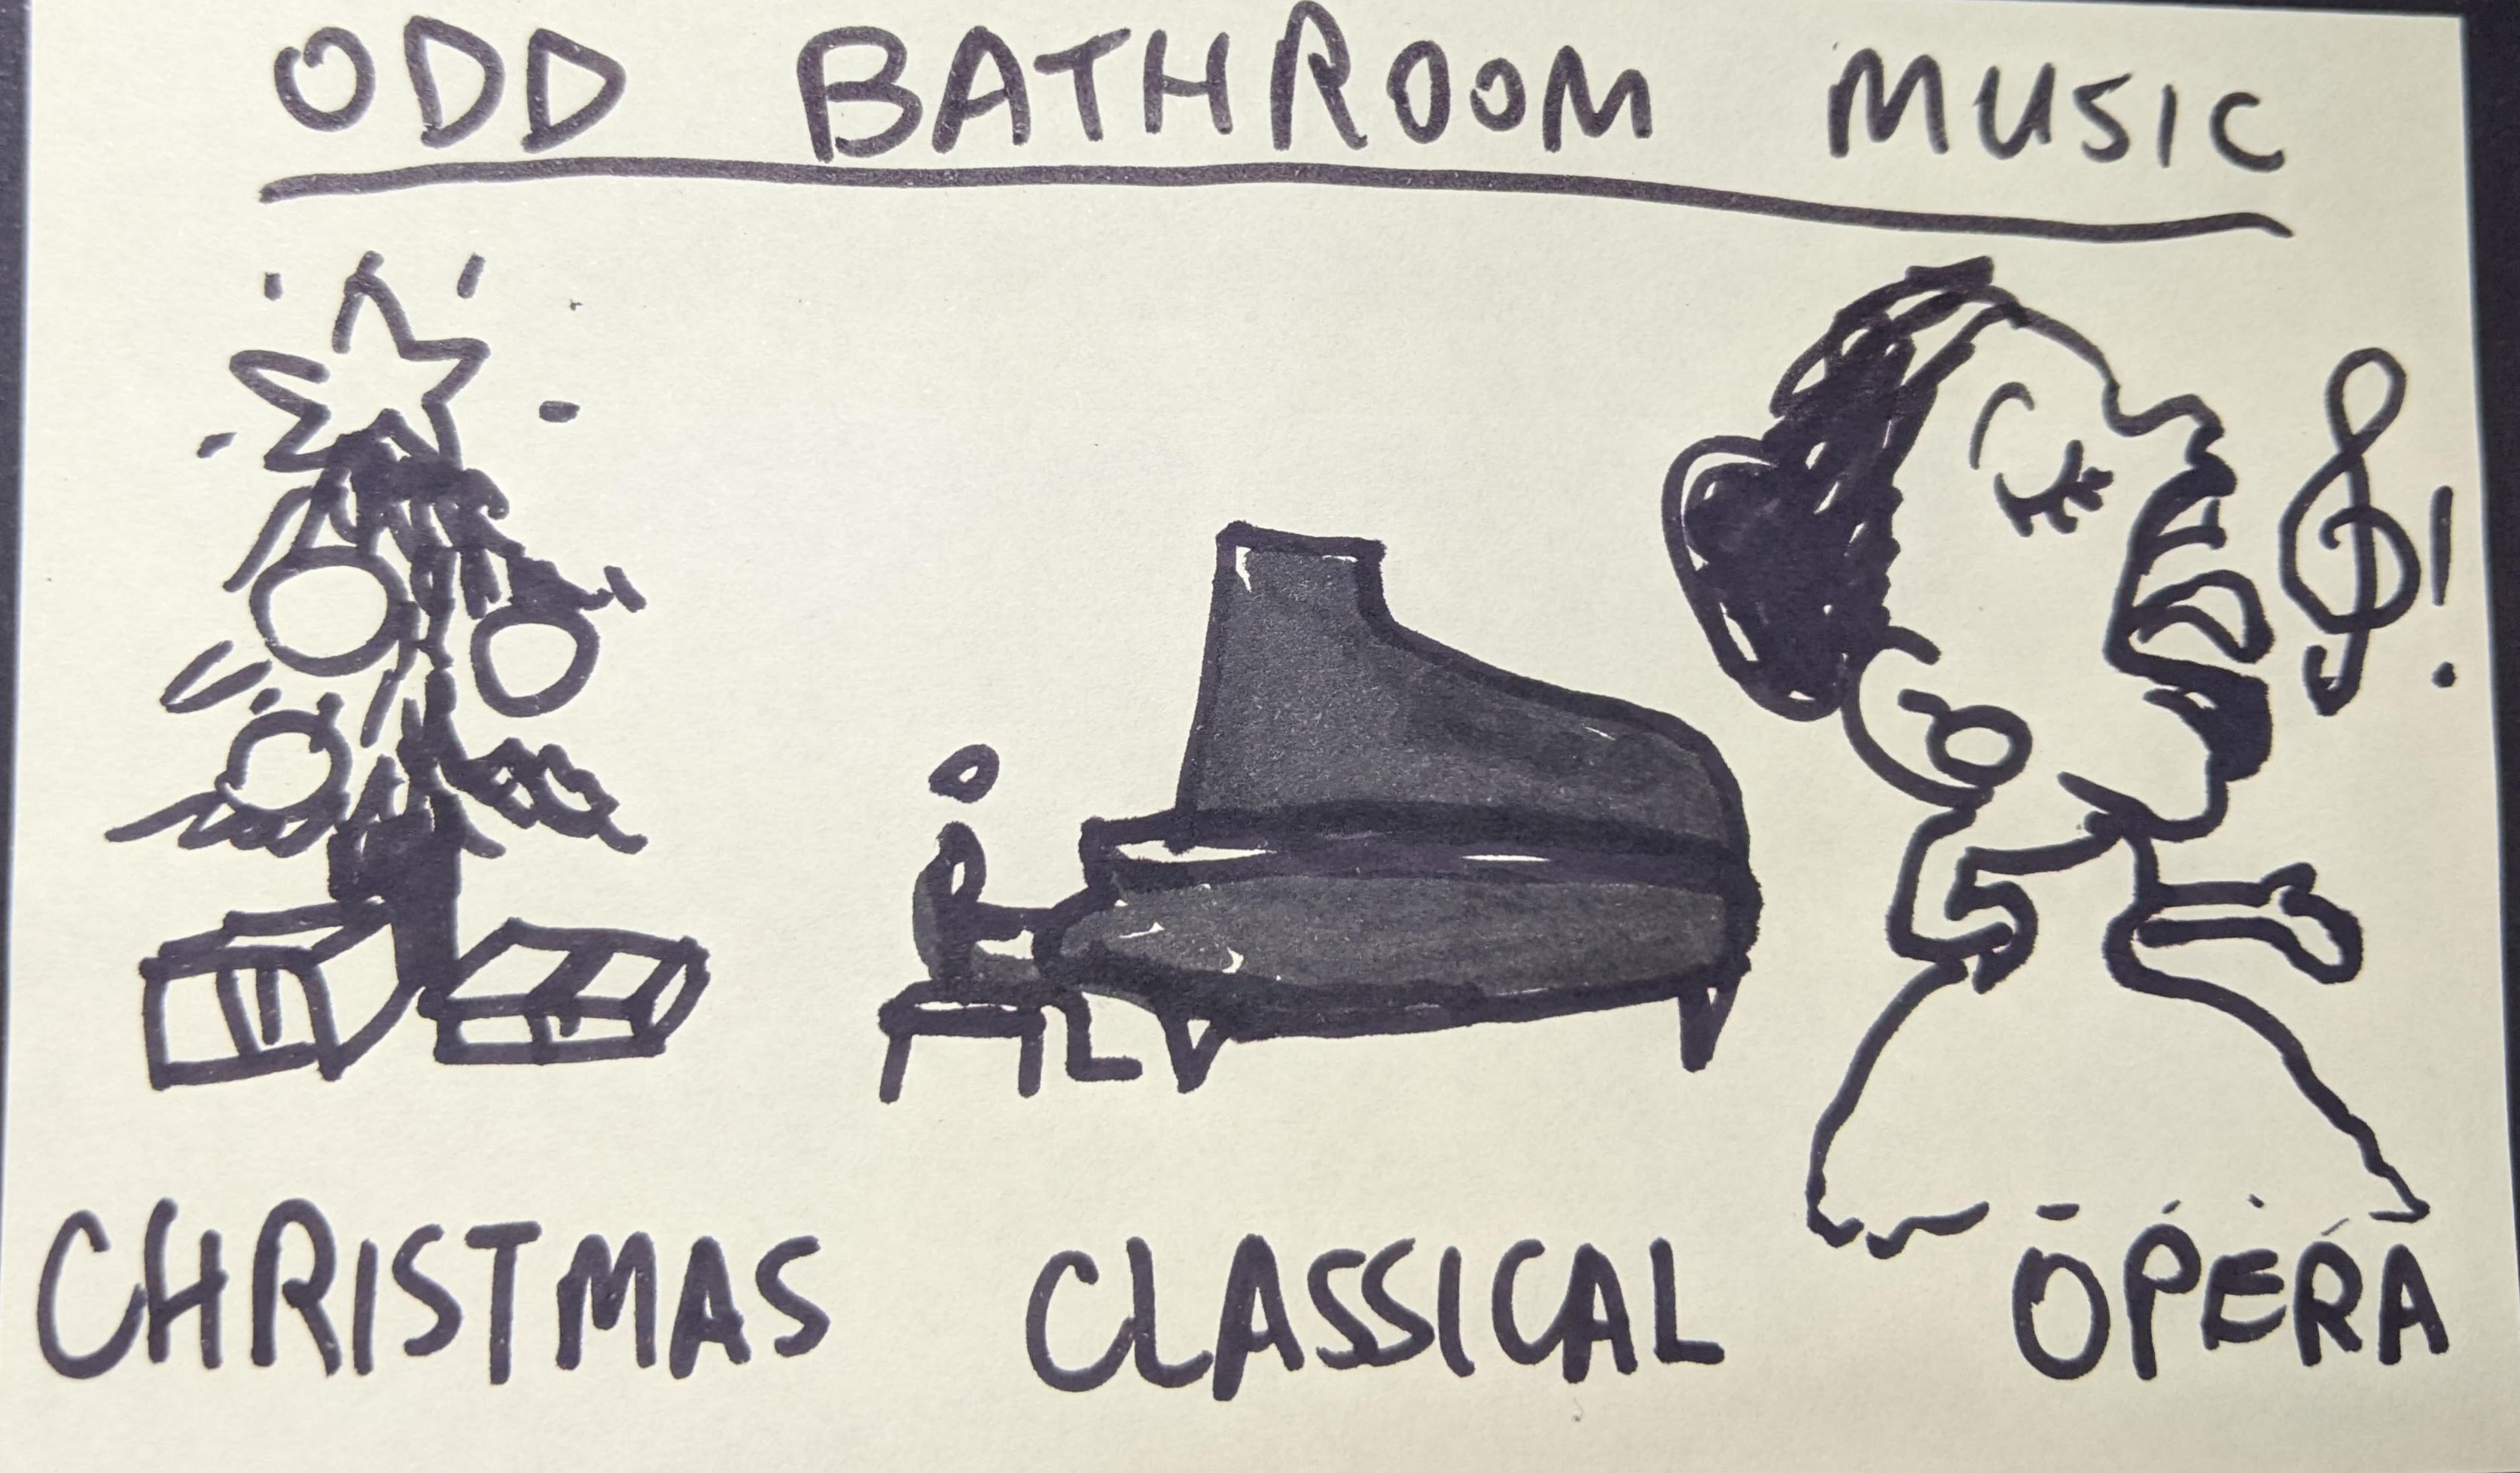 ODD BATHROOM MUSIC
CHRISTMAS CLASSICAL OPERA